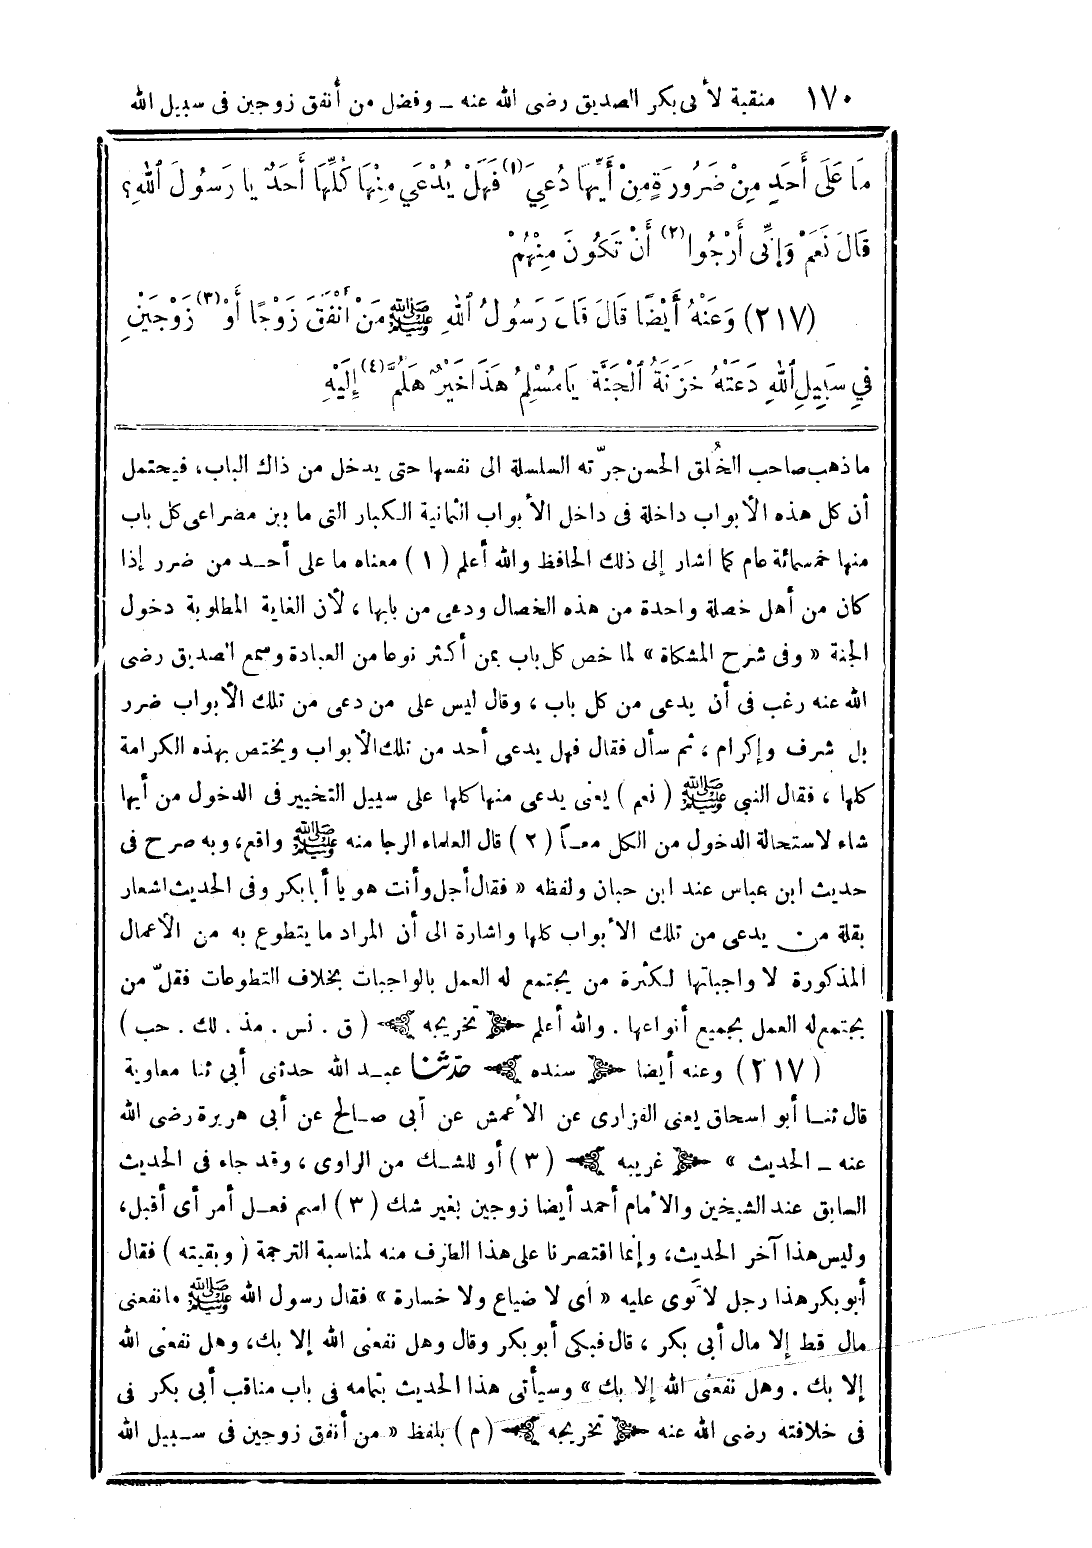 ١٧٠ منقبة لأبى بكر الصديق رضى الله عنه ـ وفضل من أنفق زوجين فى سبيل الله
مَا عَلَى أَحَدٍ مِنْ ضَرُورَةٍ مِنْ أَيِّهَا دُعِيَ (١) فَهَلْ يُدْعَي مِنْهَا كُلِّهَا أَحَدٌ يا رَسُولَ اللهِ؟
قَالَ نَعَمْ وَإِنِّى أَرْجُوا (٢) أَنْ تَكُونَ مِنْهُمْ
(٢١٧) وَعَنْهُ أَيْضًا قَالَ قَالَ رَسُولُ اللهِ ﷺ مَنْ أَنْفَقَ زَوْجًا أَوْ (٣) زَوْجَيْنِ
فِي سَبِيلِ اللهِ دَعَتْهُ خَزَنَةُ الْجَنَّةِ يَامُسْلِمُ هَذَا خَيْرٌ هَلُمَّ (٤) إِلَيْهِ
ما ذهب صاحب الخُلق الحسن جرّته السلسلة الى نفسها حتى يدخل من ذاك الباب، فيحتمل
أن كل هذه الأبواب داخلة فى داخل الأبواب الثمانية الكبار التى ما بين مضراعى كل باب
منها خمسمائة عام كما اشار إلى ذلك الحافظ والله أعلم (١) معناه ما على أحد من ضرر إذا
كان من أهل خصلة واحدة من هذه الخصال ودعى من بابها ، لأن الغاية المطلوبة دخول
الجنة « وفى شرح المشكاة » لما خص كل باب بمن أكثر نوعا من العبادة وسمع الصديق رضى
الله عنه رغب فى أن يدعى من كل باب ، وقال ليس على من دعى من تلك الأبواب ضرر
بل شرف وإكرام ، ثم سأل فقال فهل يدعى أحد من تلك الأبواب ويختص بهذه الكرامة
كلها ، فقال النبي ﷺ ( نعم ) يعنى يدعى منها كلها على سبيل التخيير فى الدخول من أيها
شاء لاستحالة الدخول من الكل معـاً (٢) قال العلماء الرجا منه ﷺ واقع، وبه صرح فى
حديث ابن عباس عند ابن حبان ولفظه « فقال أجل وأنت هو يا أبا بكر وفى الحديث اشعار
بقلة من يدعى من تلك الأبواب كلها واشارة الى أن المراد ما يتطوع به من الأعمال
المذكورة لا واجباتها لكثرة من يجتمع له العمل بالواجبات بخلاف التطوعات فقلّ من
يجتمع له العمل بجميع أنواعها . والله أعلم تخريجه ( ق . نس . مذ . لك . حب )
(٢١٧) وعنه أيضا سنده حدثنا عبـد الله حدثنى أبي ثنا معاوية
قال ثنـا أبو اسحاق يعنى الفزارى عن الأعمش عن أبى صـالح عن أبى هريرة رضى الله
عنه ـ الحديث » غريبه (٣) أو للشـك من الراوى ، وقد جاء فى الحديث
السابق عند الشيخين والأمام أحمد أيضا زوجين بغير شك (٣) اسم فعـل أمر أى أقبل،
وليس هذا آخر الحديث، وإنما اقتصرنا على هذا الطرف منه لمناسبة الترجمة ( وبقيته ) فقال
أبو بكر هذا رجل لا تَوى عليه « أى لا ضياع ولا خسارة » فقال رسول الله ﷺ ما نفعنى
مال قط إلا مال أبي بكر ، قال فبكى أبو بكر وقال وهل نفعنى الله إلا بك، وهل نفعنى الله
إلا بك . وهل نفعنى الله إلا بك » وسيأتى هذا الحديث بتمامه فى باب مناقب أبى بكر فى
فى خلافته رضى الله عنه تخريجه (م) بلفظ « من أنفق زوجين فى سـبيل الله